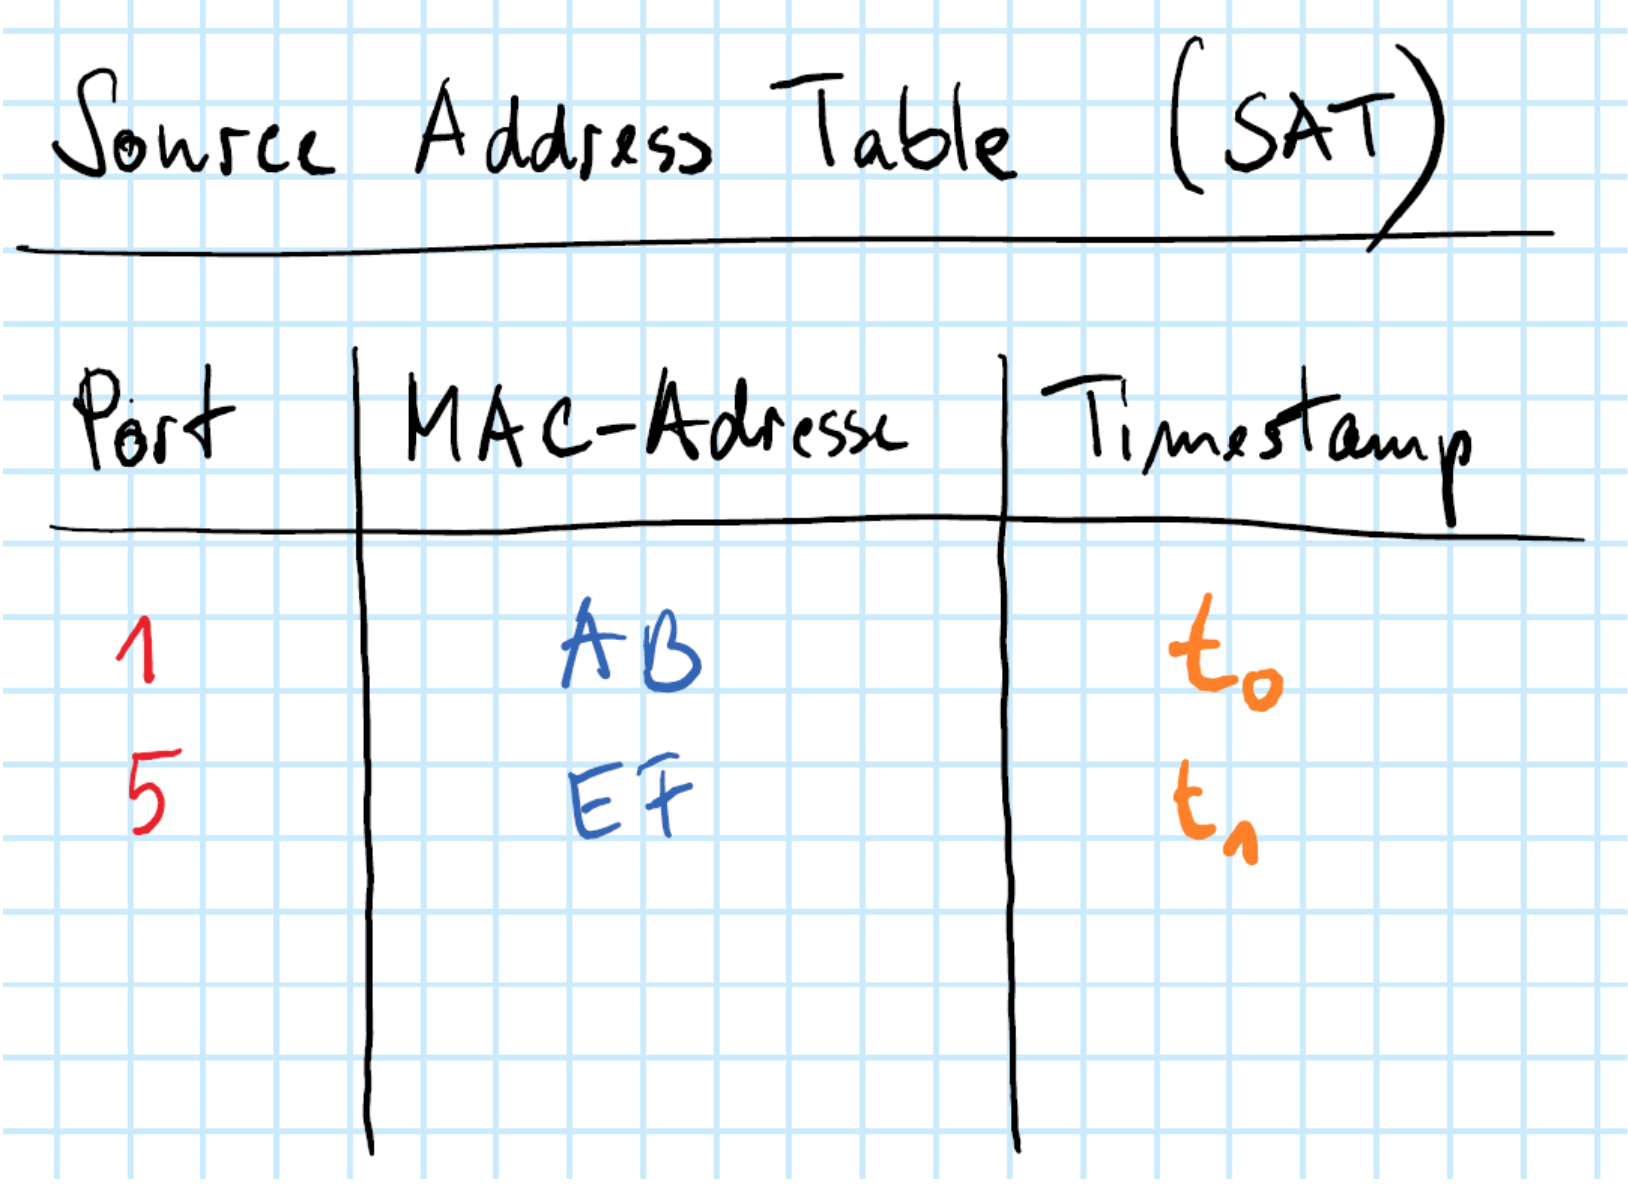 Source Address Table (SAT)
Port MAC-Adresse Timestamp
1 AB t₀
5 EF t₁